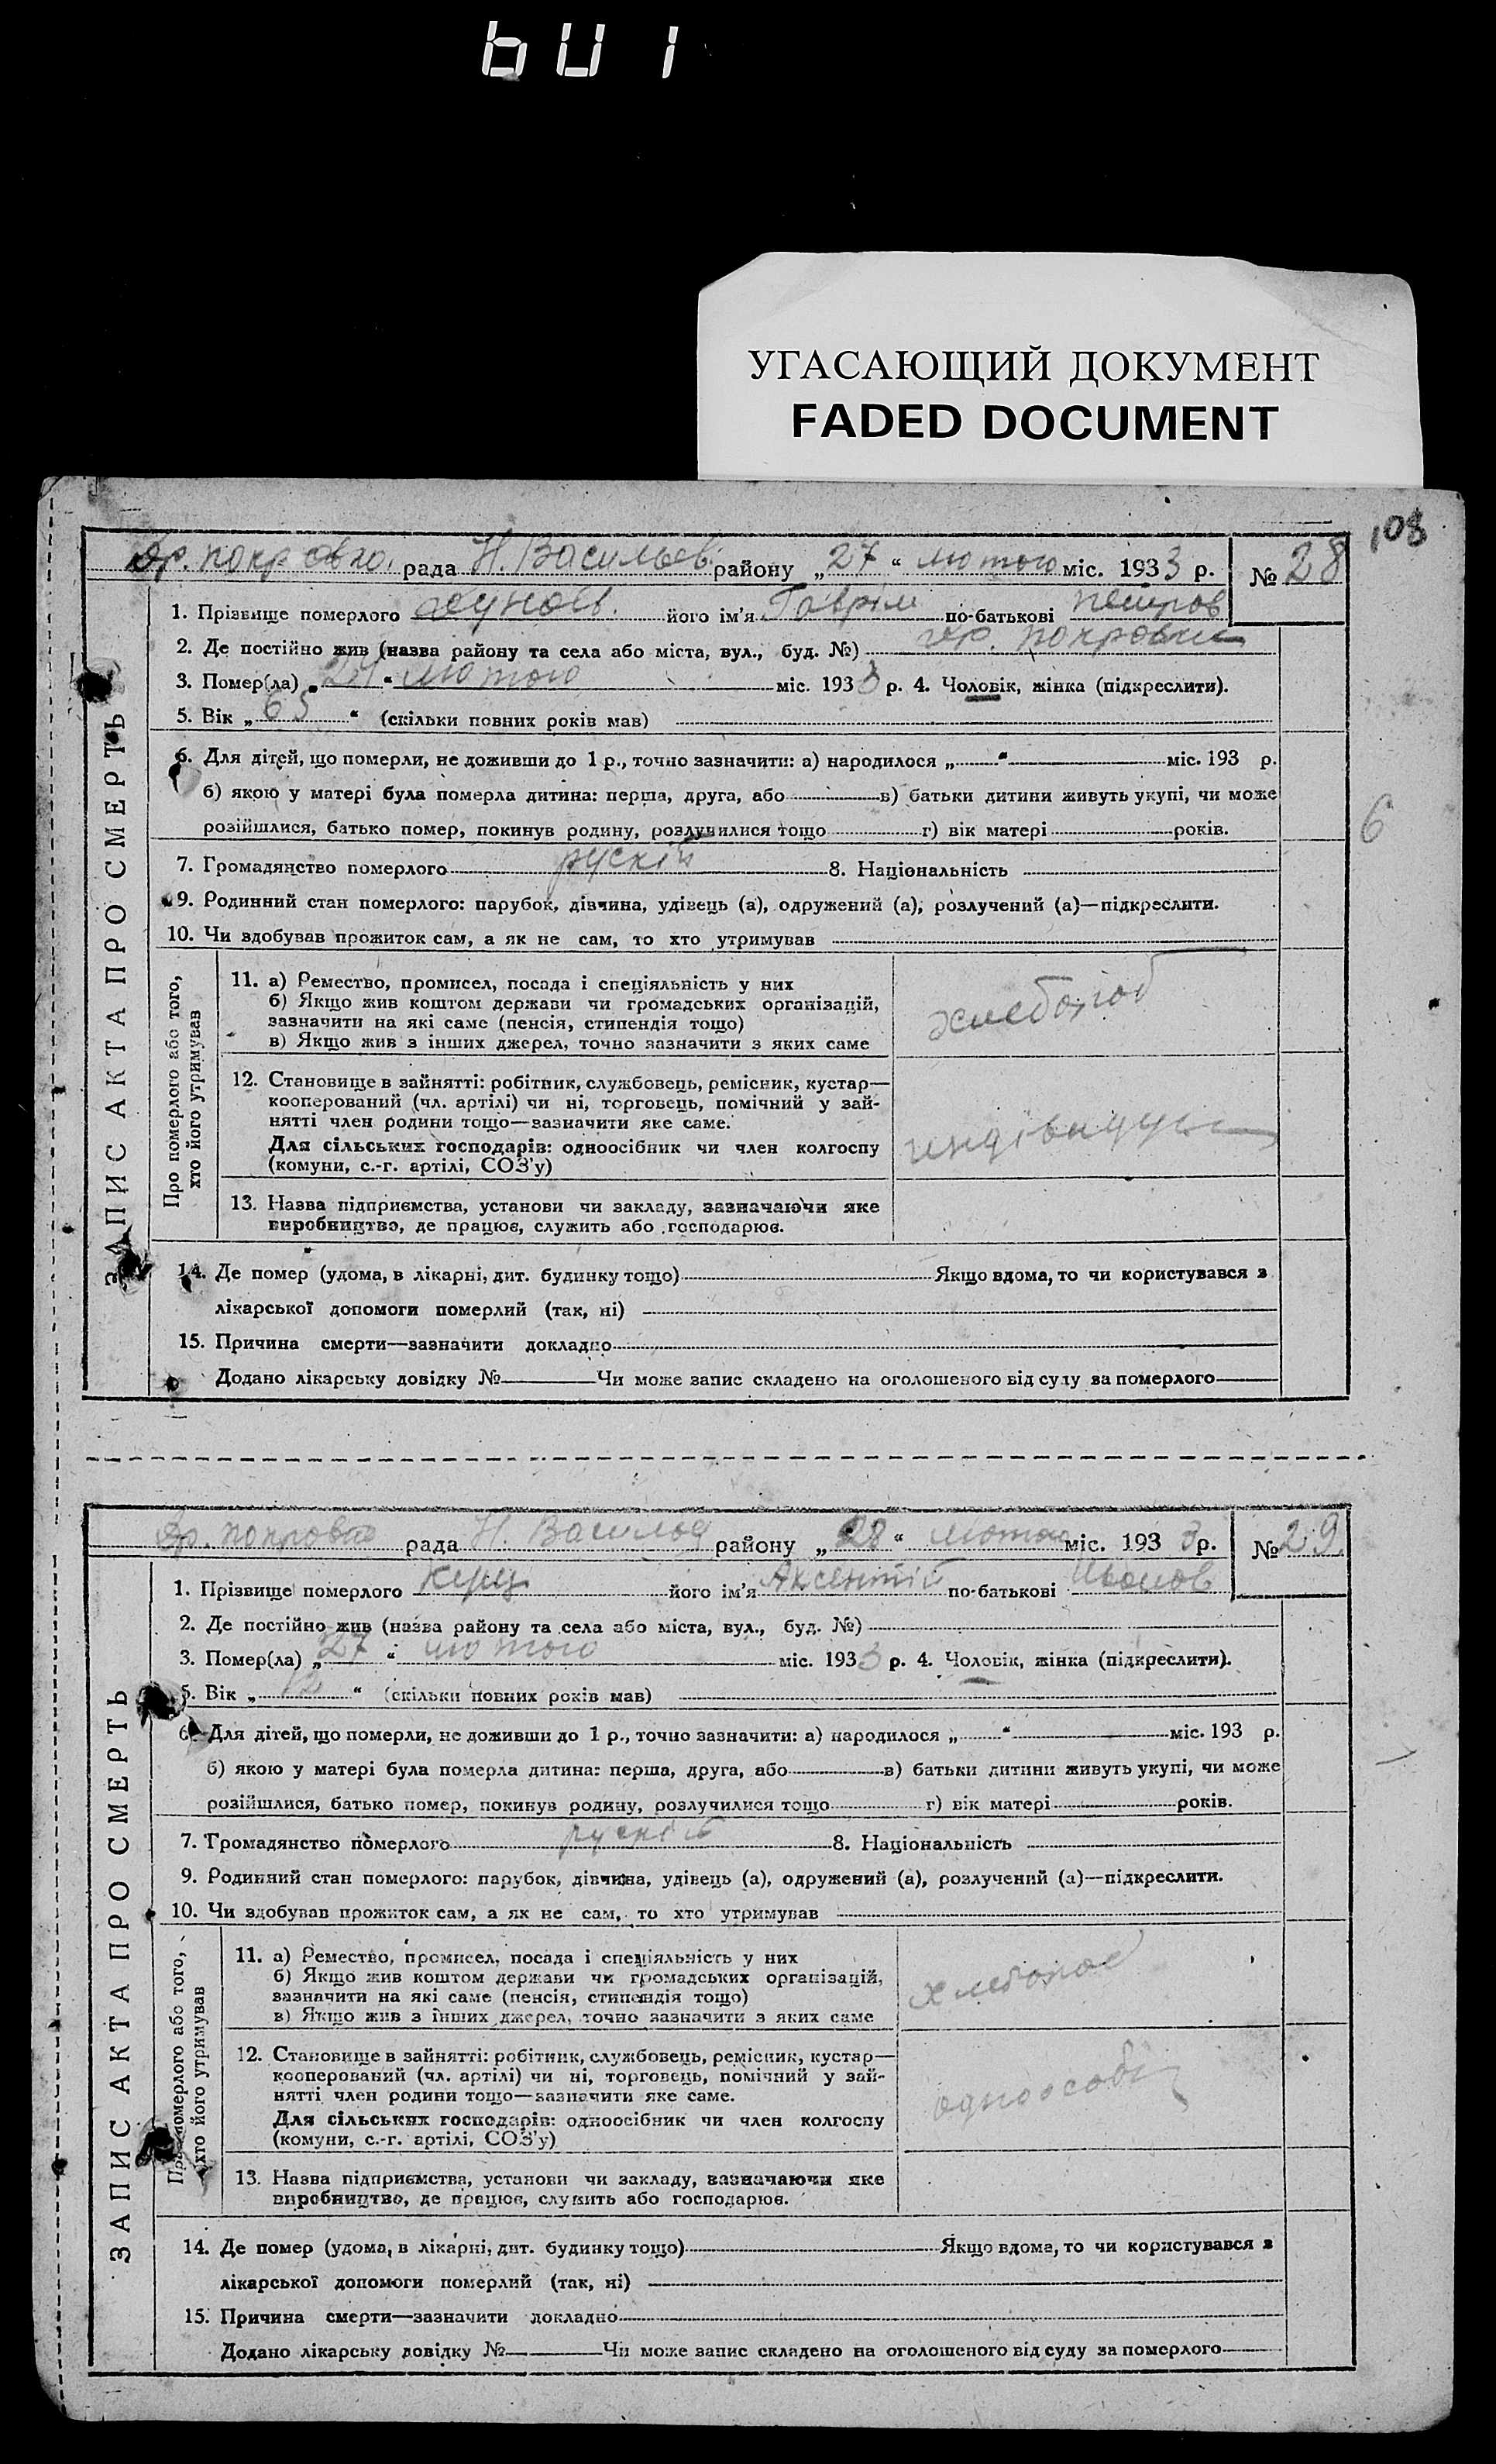 601
УГАСАЮЩИЙ ДОКУМЕНТ
FADED DOCUMENT
108
рада Н. Васильев. району „27“ лютого міс. 1933 р. № 28
1. Прізвище померлого його ім'я Гаврім по-батькові петров
2. Де постійно жив (назва району та села або міста, вул., буд. №) покровки
3. Помер(ла) „24“ лютого міс. 1933 р. 4. Чоловік, жінка (підкреслити).
5. Вік „65“ (скільки повних років мав)
6. Для дітей, що померли, не доживши до 1 р., точно зазначити: а) народилося „ “ міс. 193 р.
б) якою у матері була померла дитина: перша, друга, або в) батьки дитини живуть укупі, чи може
розійшлися, батько помер, покинув родину, розлучилися тощо г) вік матері років.
6
7. Громадянство померлого рускій 8. Національність
9. Родинний стан померлого: парубок, дівчина, удівець (а), одружений (а), розлучений (а)—підкреслити.
10. Чи здобував прожиток сам, а як не сам, то хто утримував
ЗАПИС АКТА ПРО СМЕРТЬ
Про померлого або того,
хто його утримував
11. а) Ремество, промисел, посада і спеціяльність у них
б) Якщо жив коштом держави чи громадських організацій,
зазначити на які саме (пенсія, стипендія тощо)
в) Якщо жив з інших джерел, точно зазначити з яких саме
12. Становище в зайнятті: робітник, службовець, ремісник, кустар—
кооперований (чл. артілі) чи ні, торговець, помічний у зай-
нятті член родини тощо—зазначити яке саме.
Для сільських господарів: одноосібник чи член колгоспу
(комуни, с.-г. артілі, СОЗ'у)
13. Назва підприємства, установи чи закладу, зазначаючи яке
виробництво, де працює, служить або господарює.
14. Де помер (удома, в лікарні, дит. будинку тощо) Якщо вдома, то чи користувався з
лікарської допомоги померлий (так, ні)
15. Причина смерти—зазначити докладно
Додано лікарську довідку № Чи може запис складено на оголошеного від суду за померлого
покровка рада Н. Васильев району „28“ лютого міс. 1933 р. № 29.
1. Прізвище померлого його ім'я Аксентій по-батькові Иванов
2. Де постійно жив (назва району та села або міста, вул., буд. №)
3. Помер(ла) „27“ лютого міс. 1933 р. 4. Чоловік, жінка (підкреслити).
5. Вік „12“ (скільки повних років мав)
6. Для дітей, що померли, не доживши до 1 р., точно зазначити: а) народилося „ “ міс. 193 р.
б) якою у матері була померла дитина: перша, друга, або в) батьки дитини живуть укупі, чи може
розійшлися, батько помер, покинув родину, розлучилися тощо г) вік матері років.
7. Громадянство померлого рускій 8. Національність
9. Родинний стан померлого: парубок, дівчина, удівець (а), одружений (а), розлучений (а)—підкреслити.
10. Чи здобував прожиток сам, а як не сам, то хто утримував
ЗАПИС АКТА ПРО СМЕРТЬ
Про померлого або того,
хто його утримував
11. а) Ремество, промисел, посада і спеціяльність у них
б) Якщо жив коштом держави чи громадських організацій,
зазначити на які саме (пенсія, стипендія тощо)
в) Якщо жив з інших джерел, точно зазначити з яких саме
12. Становище в зайнятті: робітник, службовець, ремісник, кустар—
кооперований (чл. артілі) чи ні, торговець, помічний у зай-
нятті член родини тощо—зазначити яке саме.
Для сільських господарів: одноосібник чи член колгоспу
(комуни, с.-г. артілі, СОЗ'у)
одноособ
13. Назва підприємства, установи чи закладу, зазначаючи яке
виробництво, де працює, служить або господарює.
14. Де помер (удома, в лікарні, дит. будинку тощо) Якщо вдома, то чи користувався з
лікарської допомоги померлий (так, ні)
15. Причина смерти—зазначити докладно
Додано лікарську довідку № Чи може запис складено на оголошеного від суду за померлого